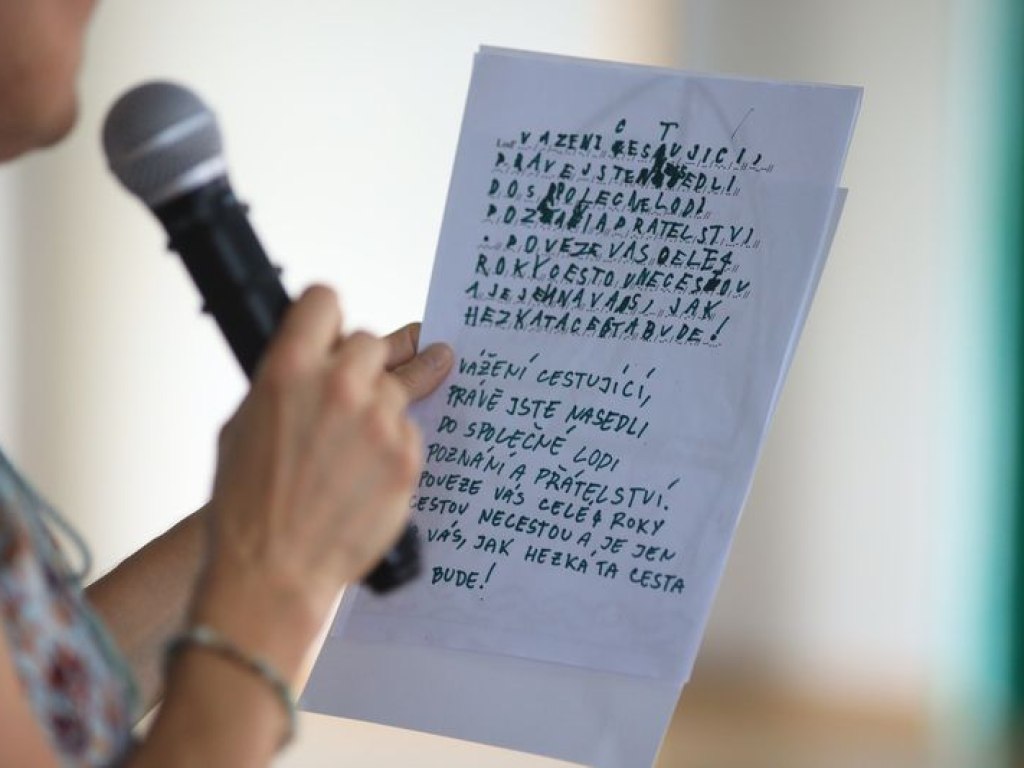 VAZENI CESTUJICI,
PRAVE JSTE NASEDLI
DO SPOLECNE LODI
POZNANI A PRATELSTVI
. POVEZE VAS CELE 4
ROKY CESTO
A JE JENNA VAS, JAK
HEZKA TA CESTA BUDE!
VÁŽENÍ CESTUJÍCÍ,
PRÁVĚ JSTE NASEDLI
DO SPOLEČNÉ LODI
POZNÁNÍ A PŘÁTELSTVÍ.
POVEZE VÁS CELÉ 4 ROKY
CESTOU NECESTOU A JE JEN
VÁS, JAK HEZKÁ TA CESTA
BUDE!